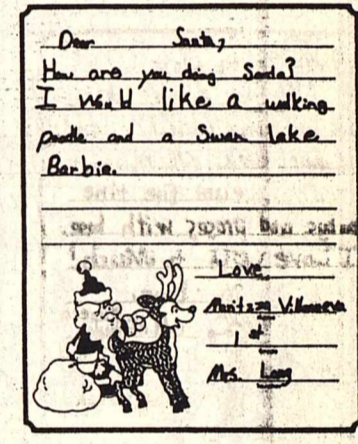 Dear Santa,
How are you doing Santa?
I would like a walking
poodle and a Swan lake
Barbie.
Love
Maritza Villanueva
1st
Mrs. Long